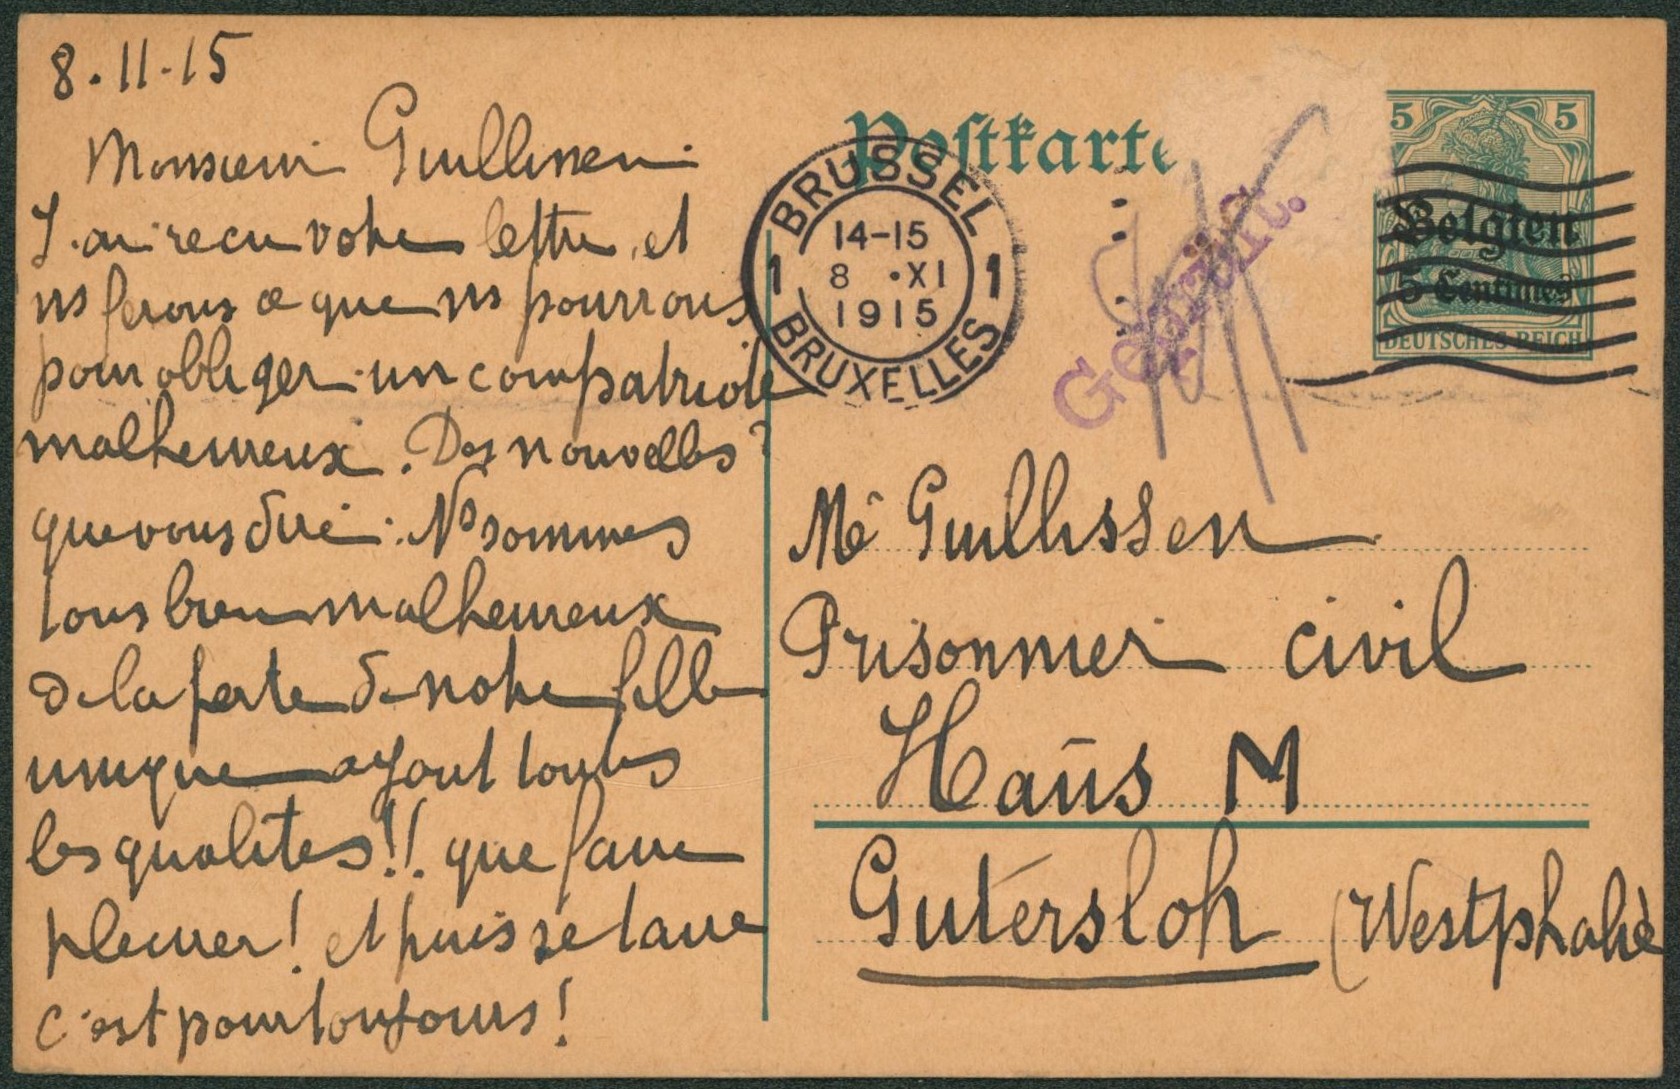 8.11.15
Monsieur Guillissen.
J'ai recu votre lettre et
ns ferons ce que ns pourrons
pour obliger un compatriote
malheureux. Des nouvelles?
que vous dire: Ns sommes
tous bien malheureux
de la perte de notre fille
unique ayant toutes
les qualités!! que faire
pleurer! et puis se taire
c'est pour toujours!
Postkarte
BRUSSEL
14-15
1 8 XI 1
1915
BRUXELLES
Geprüft.
5 5
Belgien
5 Centimes
DEUTSCHES REICH
Mr Guillissen
Prisonnier civil
Haūs M
Gutersloh (Westphalie